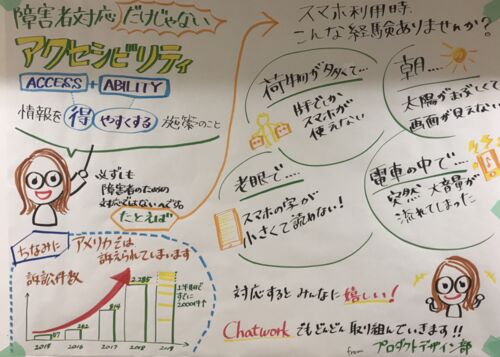 障害者対応だけじゃない
アクセシビリティ
ACCESS + ABILITY
情報を得やすくする施策のこと
必ずしも
障害者のための
対応ではないんです。
たとえば
スマホ利用時、
こんな経験ありませんか?
荷物が多くて…
片手でしか
スマホが
使えない
朝……
太陽がまぶしくて
画面が見えない
老眼で…
スマホの字が
小さくて読めない!
電車の中で…
突然大音量が
流れてしまった
ちなみに
アメリカでは
訴えられてしまいます
訴訟件数
57
262
814
2,285
上半期で
すでに
2000件↑
2016
2017
2018
2019
対応するとみんなに嬉しい!
Chatworkでもどんどん取り組んでいきます!!
from プロダクトデザイン部